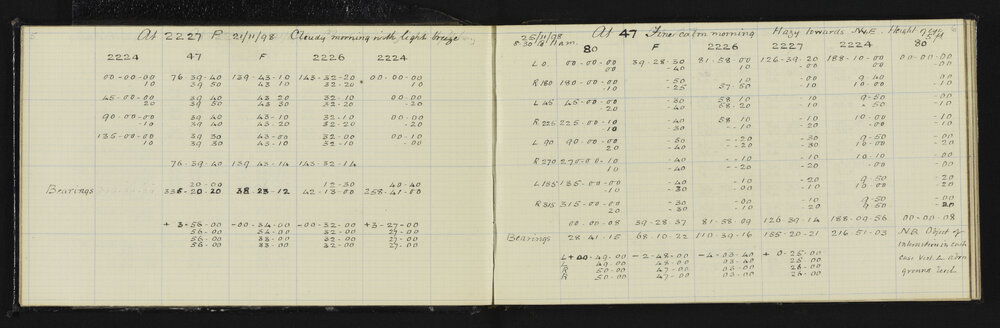 5
At 2227 P 21/11/98 Cloudy morning with light breeze
2224 47 F 2226 2224
00-00-00 76-39-40 139-43-10 143-32-20 00-00-00
10 39 50 43 10 32-20 10
45-00-00 39 40 43 20 32-10 00-00
20 39 50 43 30 32-20 -20
90-00-00 39 40 43-10 32-10 00-00
-10 39 40 43-20 32-20 -20
135-00-00 39 30 43-00 32-00 00-10
10 39 30 43-10 32-10 -00
76-39-40 139-43-14 143-32-14
20-00 12-30 40-40
Bearings 336-20-20 38-23-12 42-13-00 258-41-00
+3-56-00 -00-34-00 -00-32-00 +3-27-00
56-00 34-00 32-00 27-00
56-00 33-00 32-00 27-00
56-00 33-00 32-00 27-00
25/11/98 At 47 Fine calm morning Hazy towards N&E. Height of
8.30 to 11 am 5 ft
80 F 2226 2227 2224 80
L 0 00-00-00 39-28-30 81-58-00 126-39-20 188-10-00 00-00-00
-00 -40 -10 -00 -00 -00
R 180 180-00-00 -50 10 -00 9-40 -00
-10 -25 57-50 -10 -00 -10
L 45 45-00-00 -50 58 10 -10 9-50 -00
20 -40 58-20 -10 -50 -10
R 225 225-00-10 -40 58 10 -10 10-00 -00
10 -30 --10 -20 -00 -10
L 90 90-00-00 -50 --20 -30 9-50 -00
20 -40 --20 -30 10-00 -20
R 270 270-00-10 -40 --10 -10 10-10 -00
10 -40 --20 -20 -00 -00
L 135 135-00-00 -40 -10 -10 9-50 -20
-10 -30 -00 -10 10-00 -20
R 315 315-00-00 -30 -00 -00 9-50 -00
20 -30 -10 -20 9-50 -20
00-00-08 39-28-37 81-58-09 126-39-14 188-09-56 00-00-08
Bearings 28-41-15 68-10-22 110-39-16 155-20-21 216-51-03 N.B. Object of
intersection in each
L +00-49-00 -2-48-00 -4-03-40 +0-25-00 case
L 49-00 48-00 03-40 25-00 above
R 50-00 47-00 03-00 26-00 ground level
R 50-00 47-00 03-00 26-00